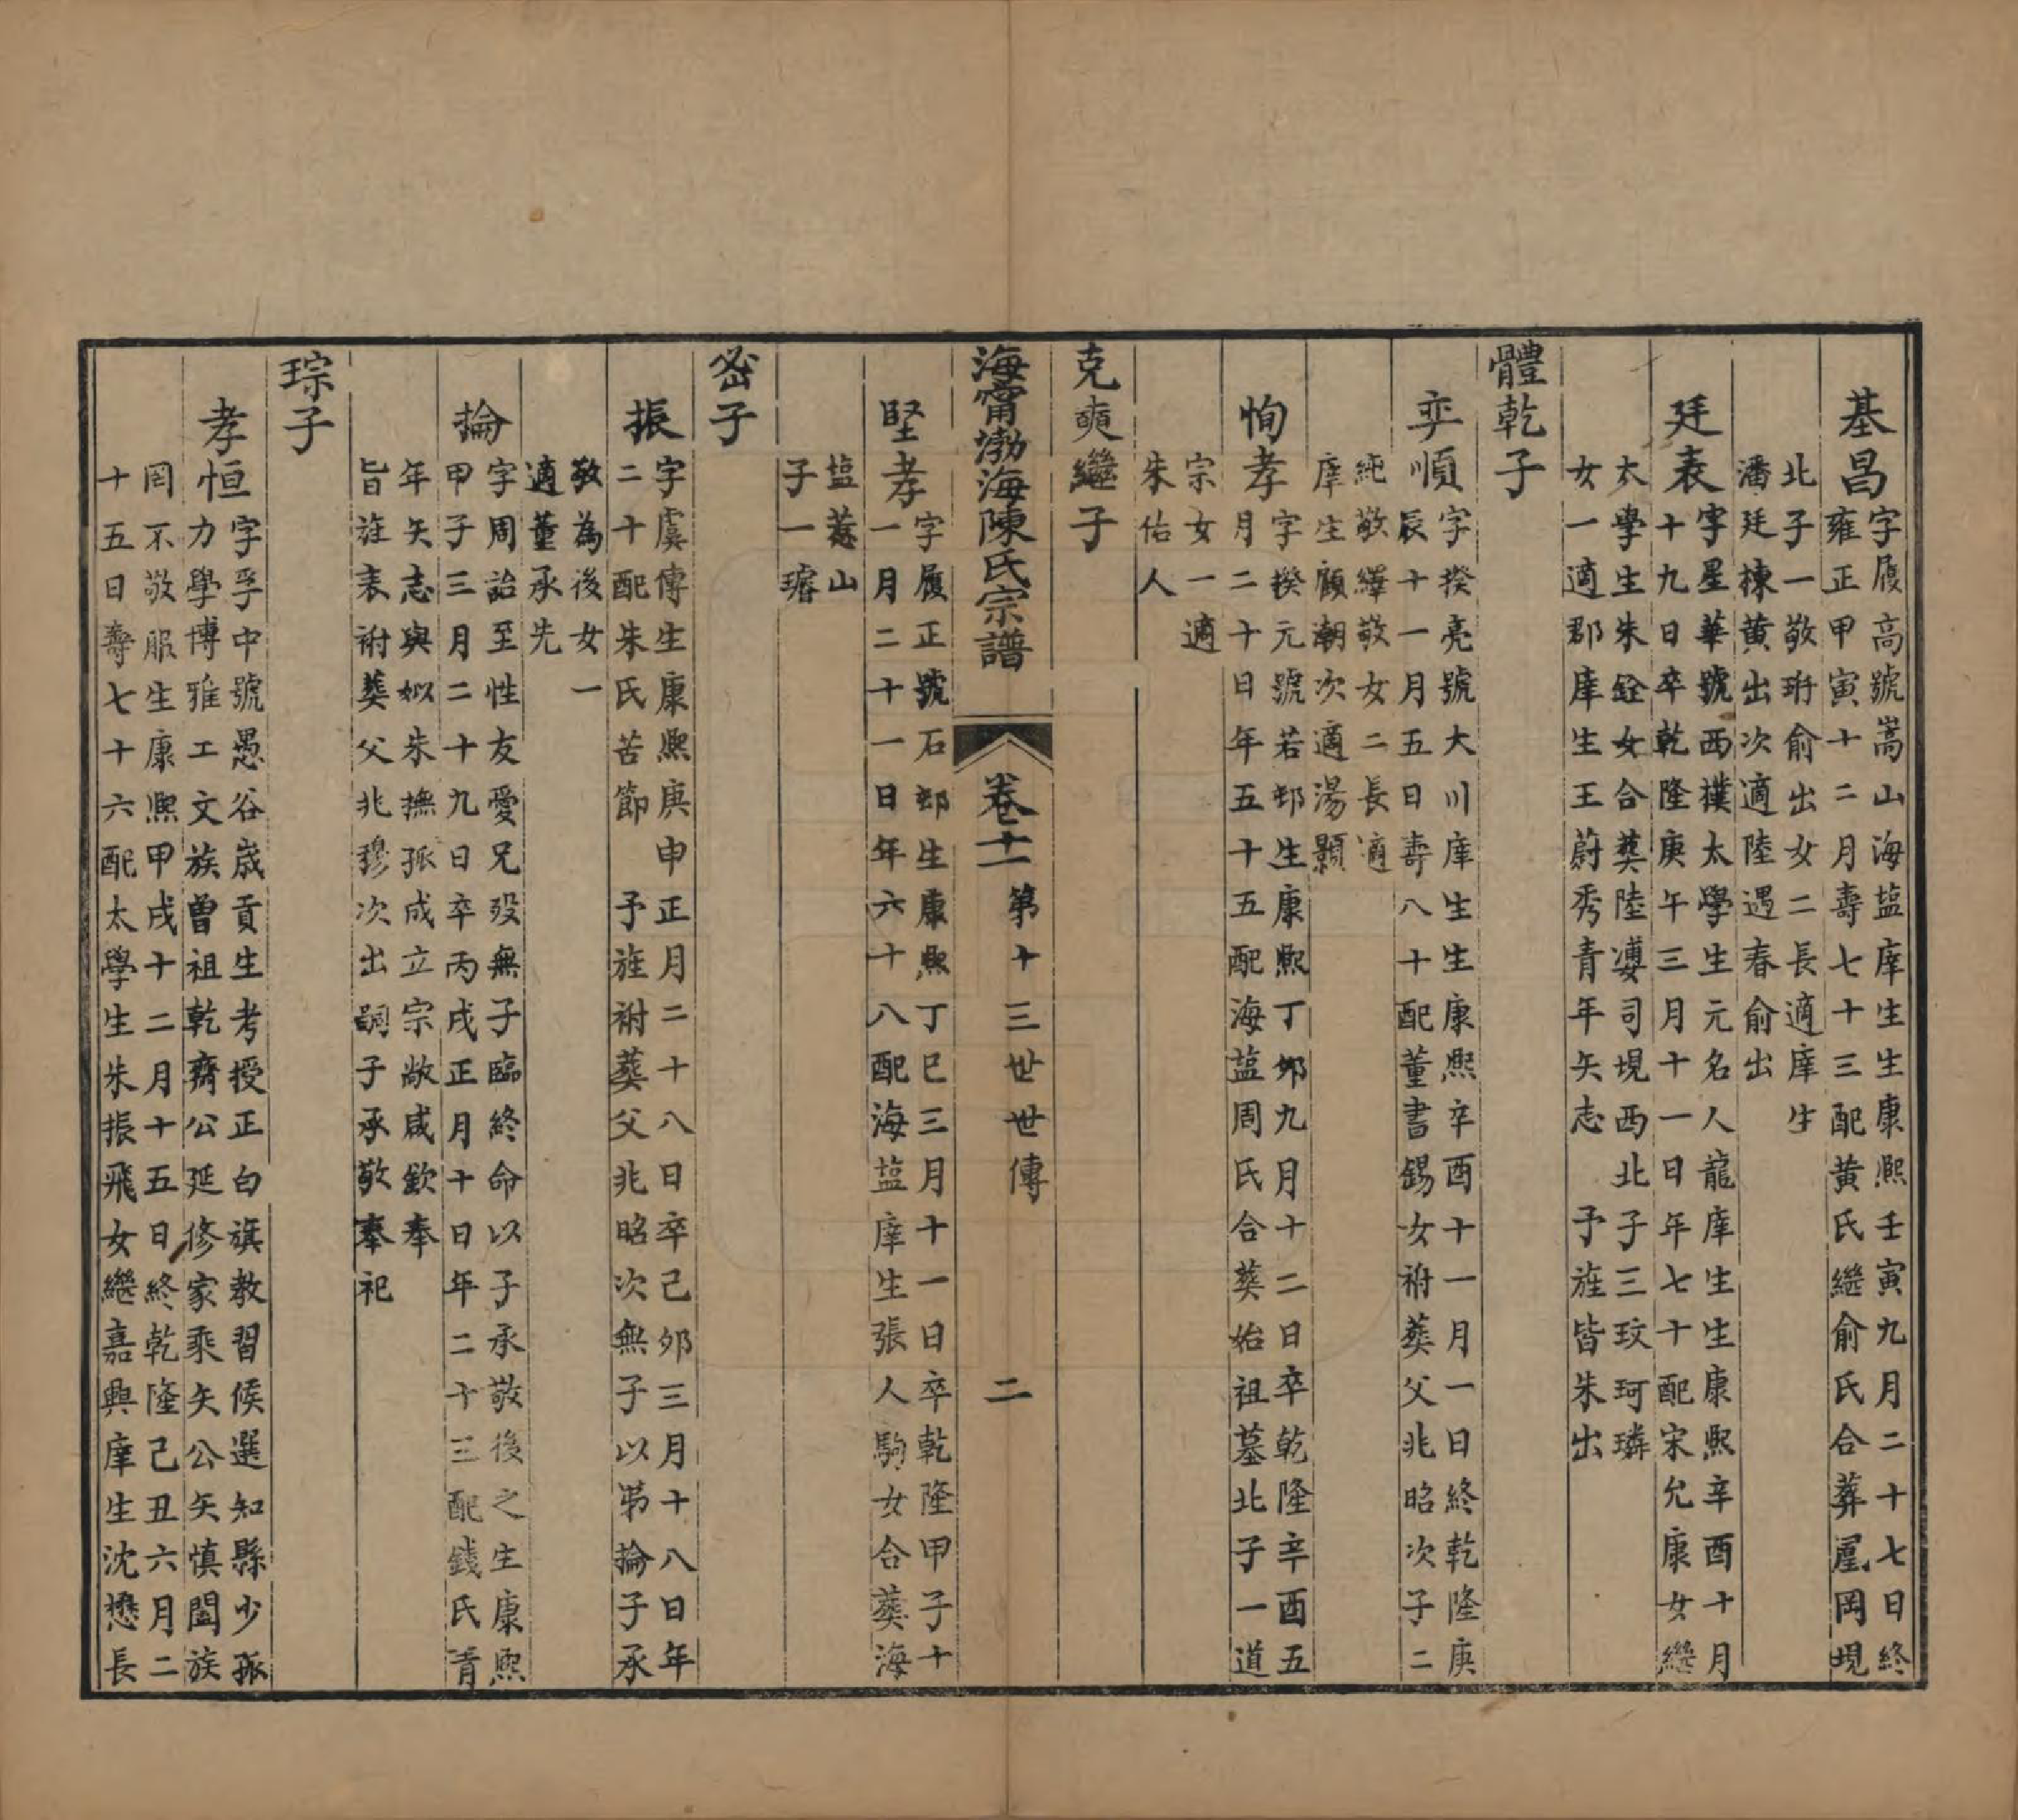 基昌字履高號嵩山海盐庠生生康熙壬寅九月二十七日終
雍正甲寅十二月壽七十三配黄氏繼俞氏合葬鳯岡堄
北子一敬珩俞出女二長適庠生
潘廷棟黄出次適陸遇春俞出
廷表字星華號西樸太學生元名人龍庠生生康熙辛酉十月
十九日卒乾隆庚午三月十一日年七十配宋允康女繼
太學生朱銓女合葬陸溇司堄西北子三玟珂璘
女一適郡庠生王蔚秀青年矢志　予旌皆朱出
體乾子
弈順字揆亮號大川庠生生康熙辛酉十一月一日終乾隆庚
辰十一月五日壽八十配董書錫女祔葬父兆昭次子二
純敬繹敬女二長適
庠生顧潮次適湯顥
恂孝字揆元號若邨生康熙丁卯九月十二日卒乾隆辛酉五
月二十日年五十五配海盐周氏合葬始祖墓北子一道
宗女一適
朱佑人
克奭繼子
海甯渤海陳氏宗譜　卷十一　第十三世世傳　二
堅孝字履正號石邨生康熙丁巳三月十一日卒乾隆甲子十
一月二十一日年六十八配海盐庠生張人駒女合葬海
盐惹山
子一璿
峚子
振字虞傳生康熙庚申正月二十八日卒己卯三月十八日年
二十配朱氏苦節　予旌祔葬父兆昭次無子以弟掄子承
敬為後女一
適董承先
掄字周詒至性友愛兄歿無子臨終命以子承敬後之生康熙
甲子三月二十九日卒丙戌正月十日年二十三配錢氏青
年矢志與姒朱撫孤成立宗敞咸欽奉
旨旌表祔葬父兆穆次出嗣子承敬奉祀
琮子
孝恒字孚中號愚谷歲貢生考授正白旗教習候選知縣少孤
力學博雅工文族曾祖乾齋公延修家乘矢公矢慎闔族
罔不敬服生康熙甲戌十二月十五日終乾隆己丑六月二
十五日壽七十六配太學生朱振飛女繼嘉興庠生沈懋長